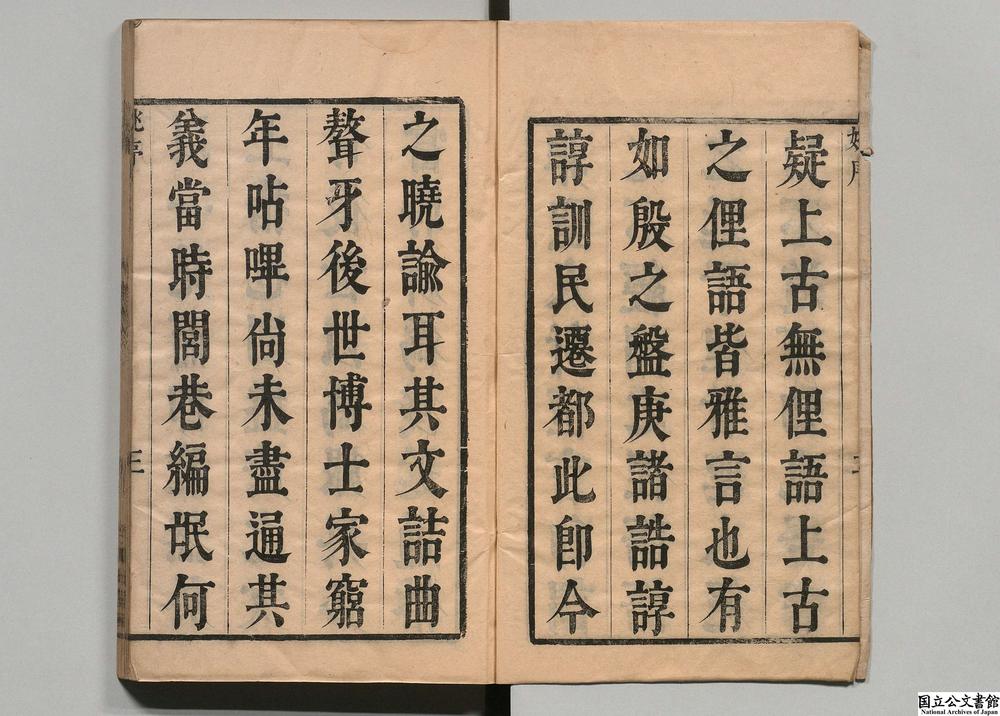 疑上古無俚語上古
之俚語皆雅言也有
如殷之盤庚諸誥諄
諄訓民遷都此卽今
之曉諭耳其文詰曲
聱牙後世博士家窮
年呫嗶尙未盡通其
義當時閭巷編氓何
三
国立公文書館
National Archives of Japan